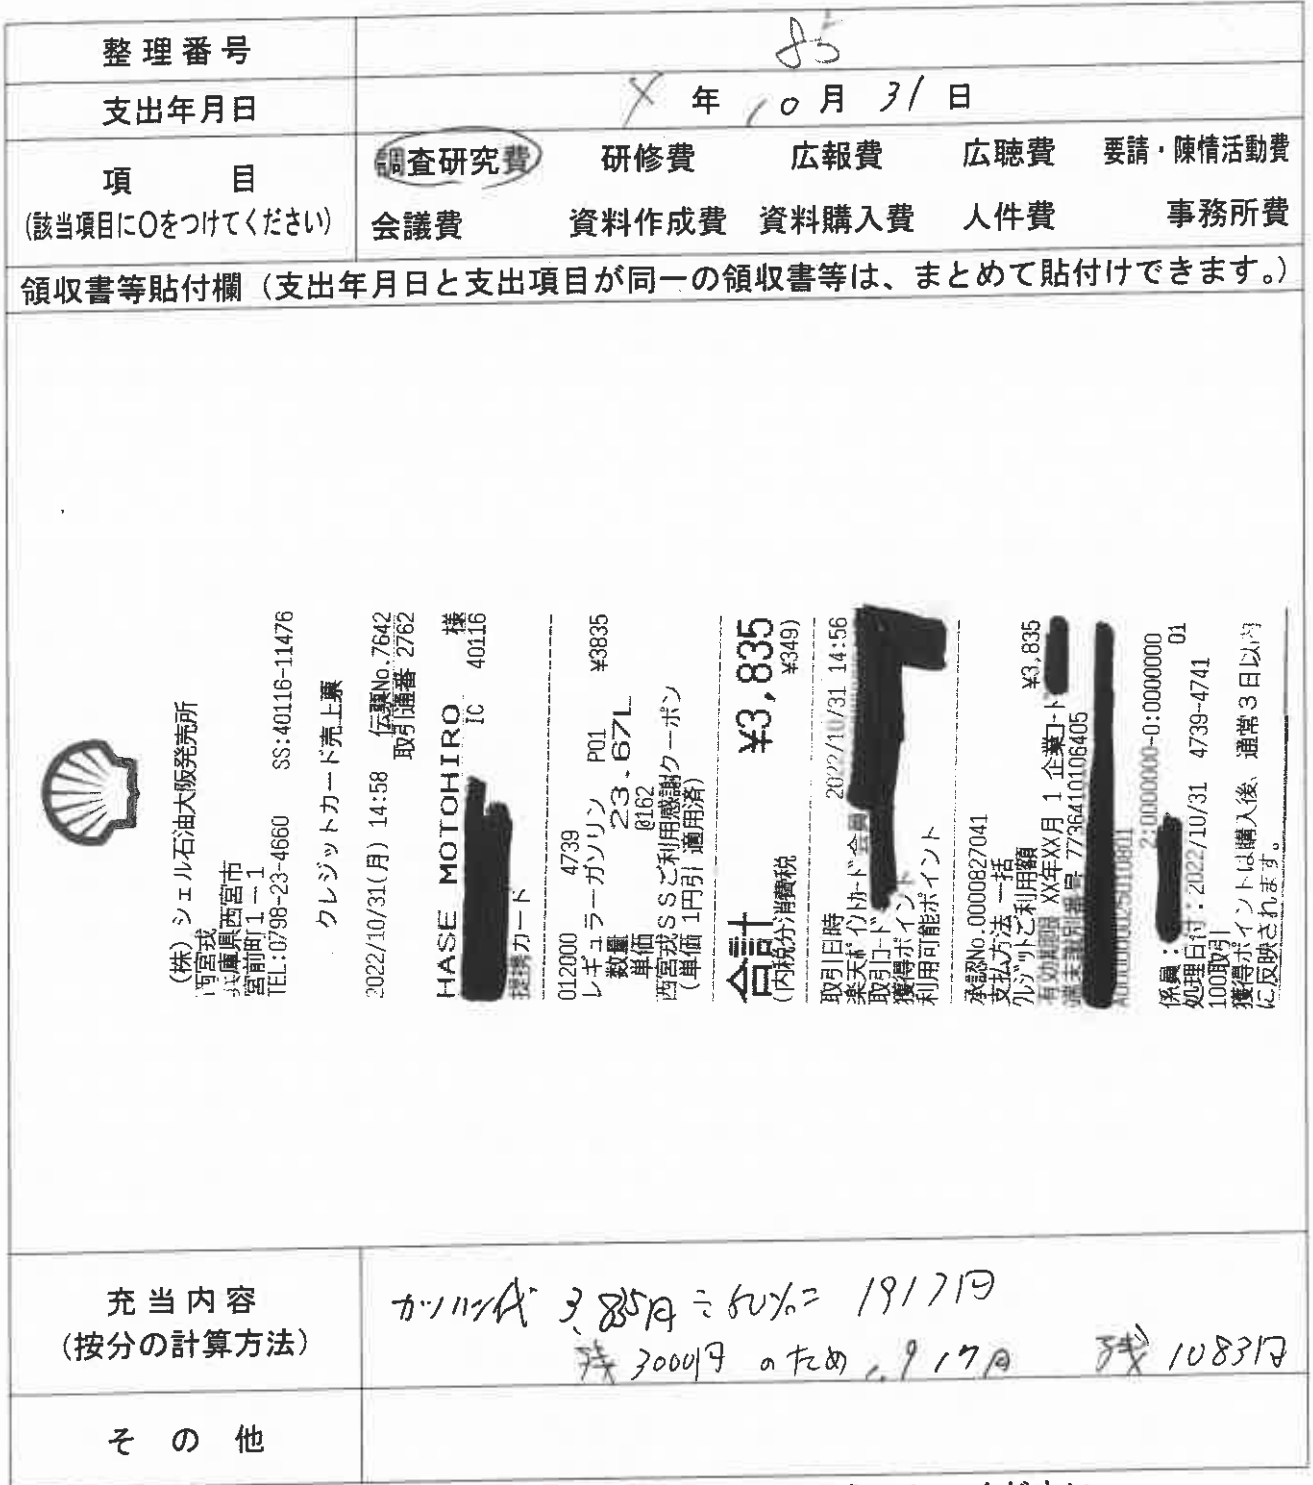 整理番号 85
支出年月日 年 10月 31日
項目
(該当項目に○をつけてください)
調査研究費 研修費 広報費 広聴費 要請・陳情活動費
会議費 資料作成費 資料購入費 人件費 事務所費
領収書等貼付欄(支出年月日と支出項目が同一の領収書等は、まとめて貼付けできます。)
(株)シェル石油大阪発売所
西宮戎
兵庫県西宮市
宮前町1-1
TEL:0798-23-4660 SS:40116-11476
クレジットカード売上票
2022/10/31(月) 14:58 伝票No.7642
取引通番 2762
HASE MOTOHIRO 様
IC 40116
提携カード
012000 4739
レギュラーガソリン P01 ¥3835
数量 23.67L
単価 @162
西宮戎SSご利用感謝クーポン
(単価 1円引 適用済)
合計 ¥3,835
(内税分消費税 ¥349)
取引日時 2022/10/31 14:56
楽天ポイントカード会員
取引コード
獲得ポイント
利用可能ポイント
承認No.0000827041
支払方法 一括
クレジットご利用額 ¥3,835
有効期限 XX年XX月 1 企業コード
端末識別番号 7736410106405
2:0000000-0:0000000
係員: 01
処理日付:2022/10/31 4739-4741
100取引
獲得ポイントは購入後、通常3日以内
に反映されます。
充当内容
(按分の計算方法)
ガソリン代 3,835円÷50%= 1917円
残 3000円 のため 1,917円 残 1083円
その他